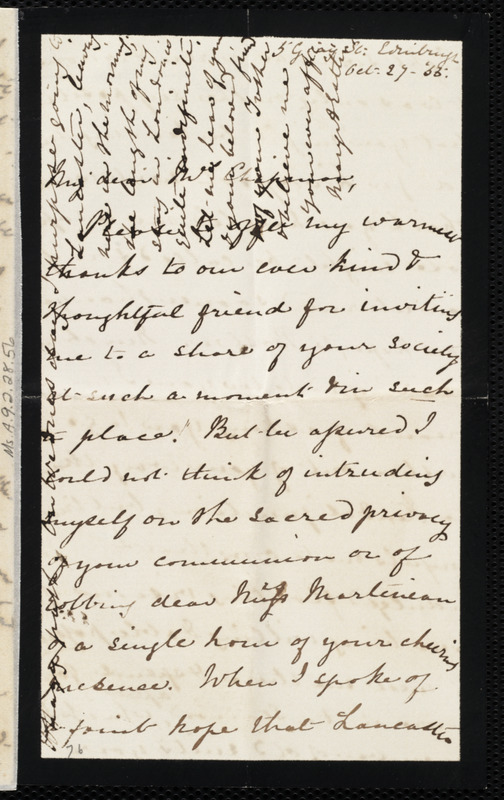 5 Gray St: Edinburgh
Oct- 27- 55.
My dear Mrs Chapman,
Please to offer my warmest
thanks to our ever kind &
thoughtful friend for inviting
me to a share of your society
at such a moment & in such
a place! But be assured I
could not think of intruding
myself on the sacred privacy
of your communion or of
robbing dear Miss Martineau
of a single hour of your cheering
presence. When I spoke of
a faint hope that Lancaster
26
purpose going to
Lancaster,
here in the morning.
the length of my
stay in London is
quite indefinite.
Let me hear of you
& your beloved friend
believe me
yours
Mary
Ms. A. 9. 2. 28. 56